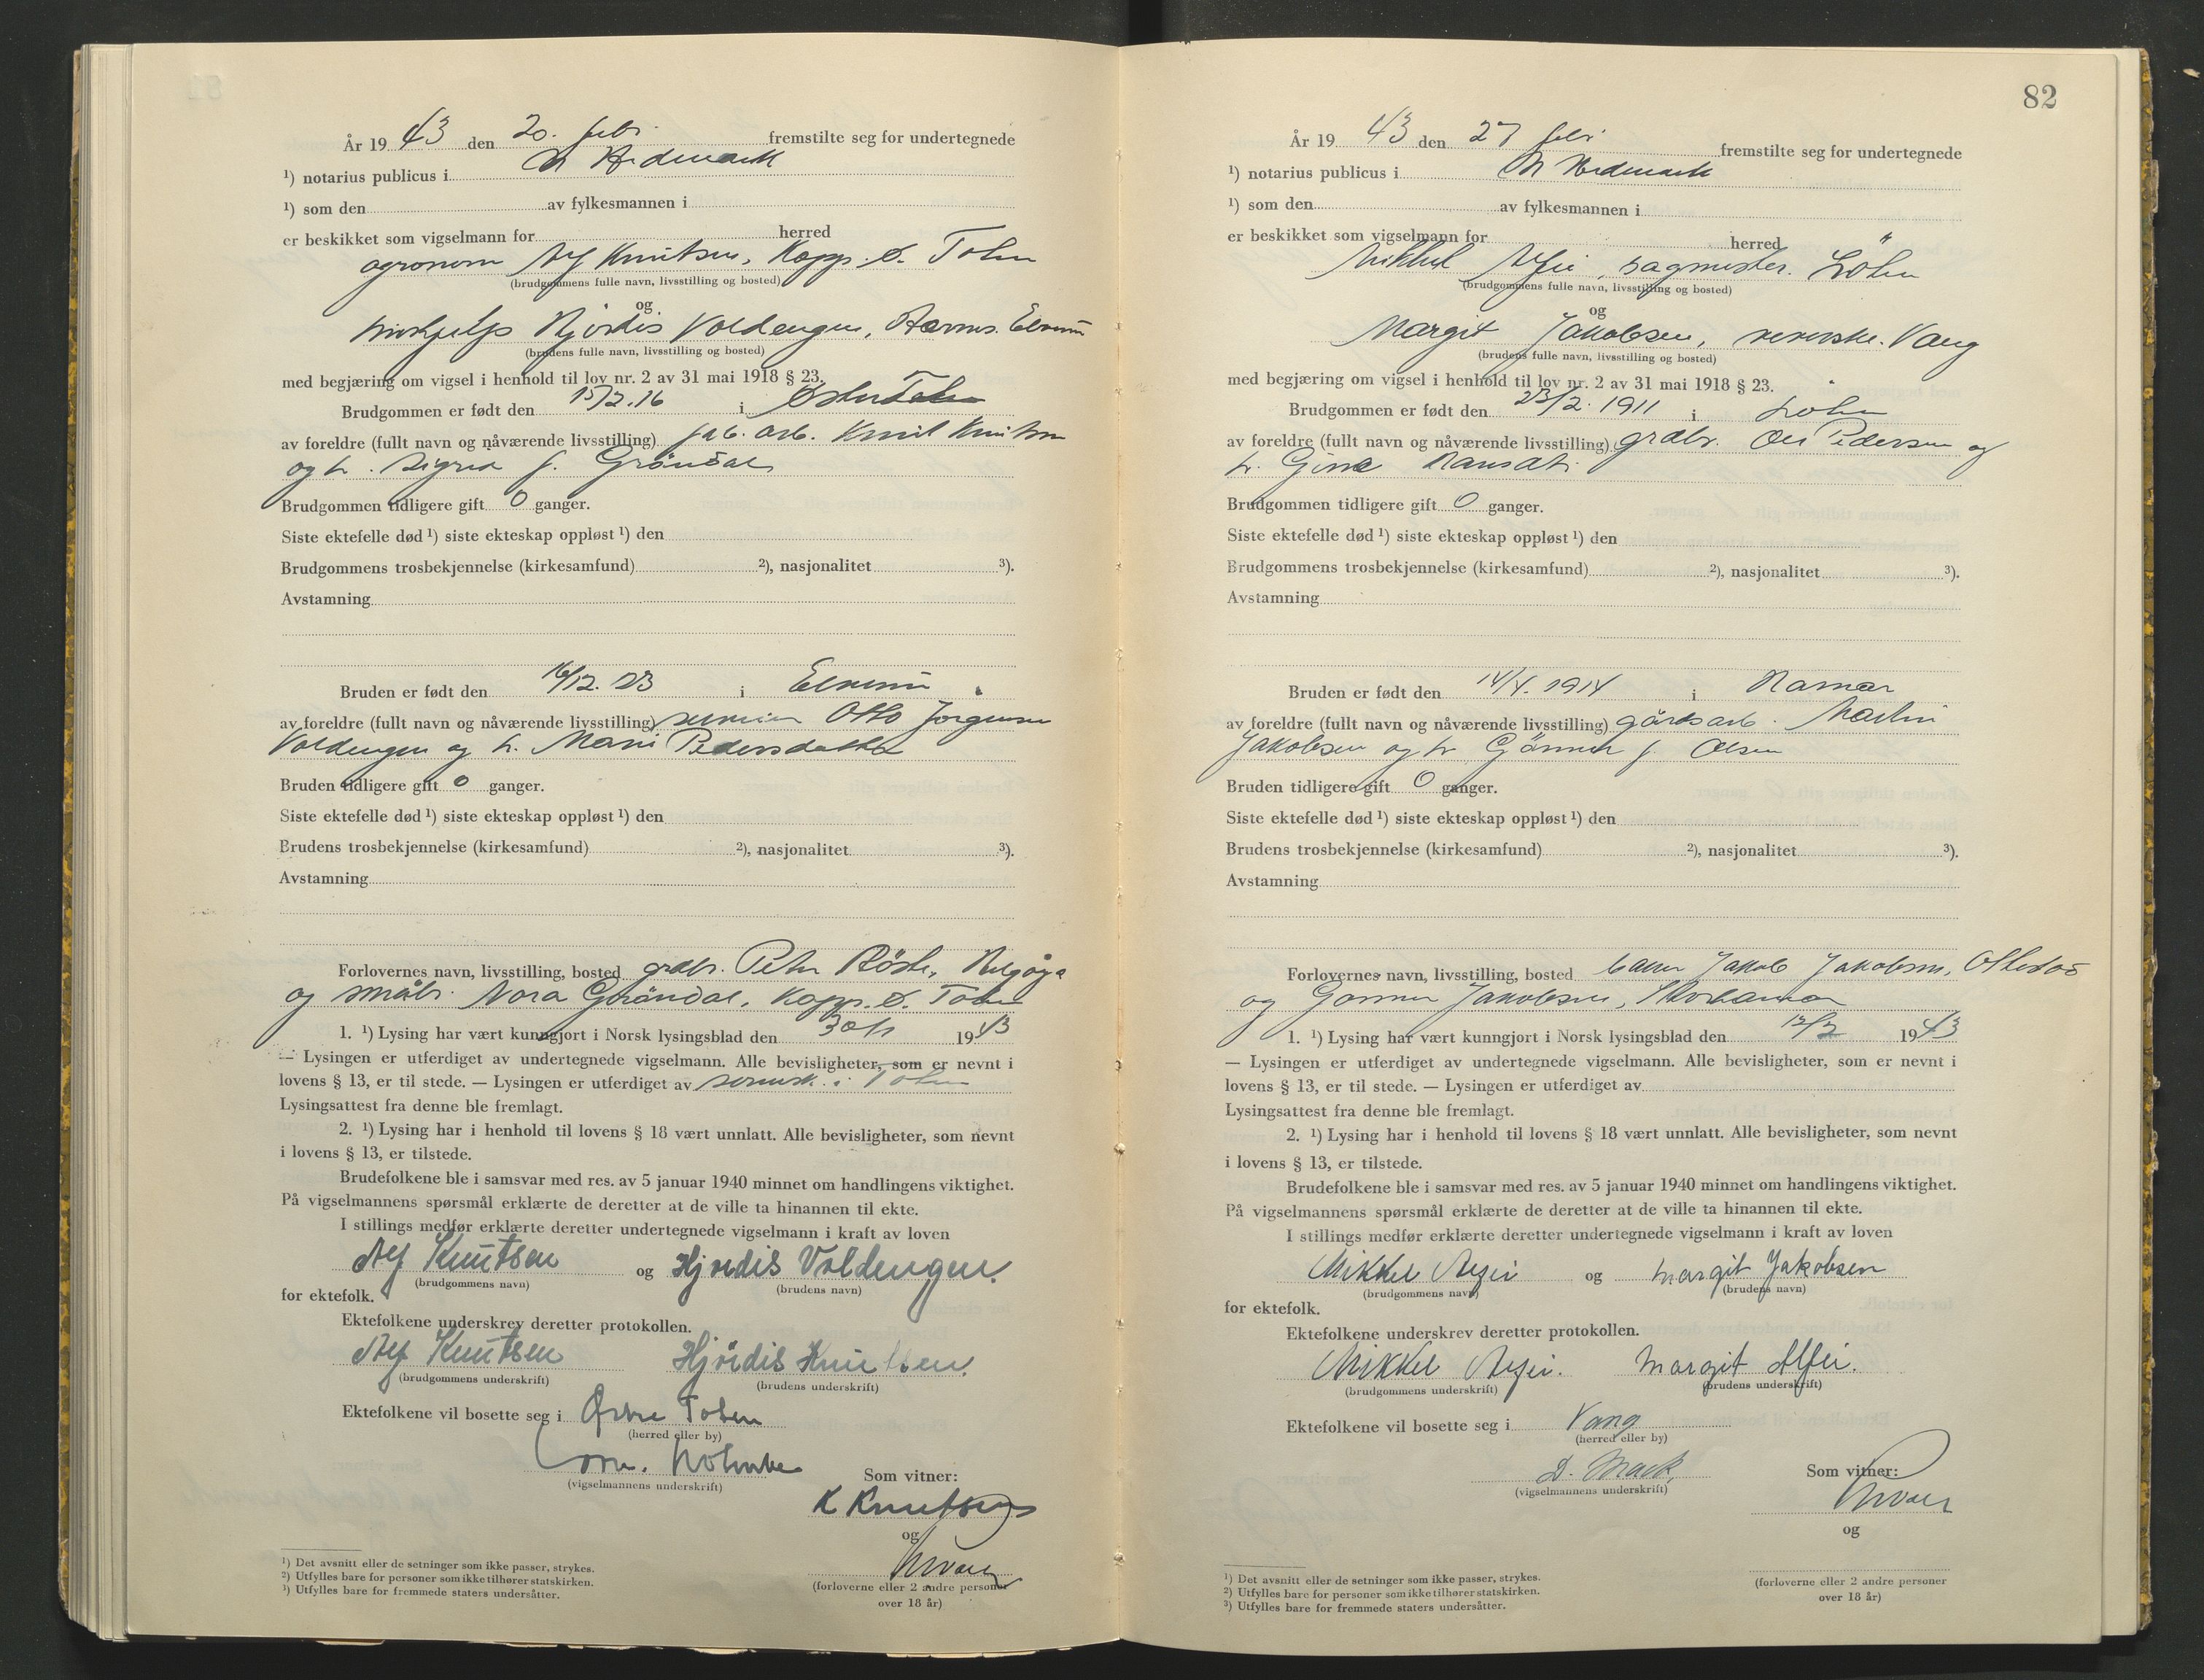 År 19 43 den 20. febr. fremstilte seg for undertegnede
¹) notarius publicus i N Hedmark
¹) som den av fylkesmannen i
er beskikket som vigselmann for herred
agronom Alf Knutsen, Kapp. Ø. Toten
(brudgommens fulle navn, livsstilling og bosted)
og
Hjørdis Voldengen, Hernes. Elverum
(brudens fulle navn, livsstilling og bosted)
med begjæring om vigsel i henhold til lov nr. 2 av 31 mai 1918 § 23.
Brudgommen er født den 15/2.16 i Østre Toten
av foreldre (fullt navn og nåværende livsstilling) fab. arb. Knut Knutsen
og h. Sigrid f. Gröndal
Brudgommen tidligere gift 0 ganger.
Siste ektefelle død ¹) siste ekteskap oppløst ¹) den
Brudgommens trosbekjennelse (kirkesamfund) ²), nasjonalitet ³).
Avstamning
Bruden er født den 16/12. 23 i Elverum
av foreldre (fullt navn og nåværende livsstilling) Otto Jørgensen
Voldengen og h. Marie Pedersdatter
Bruden tidligere gift 0 ganger.
Siste ektefelle død ¹) siste ekteskap oppløst ¹) den
Brudens trosbekjennelse (kirkesamfund) ²), nasjonalitet ³).
Avstamning
Forlovernes navn, livsstilling, bosted grdbr. Peter Röste, Helgøya
og småbr. Nora Gröndal, Kapp. Ø. Toten
1. ¹) Lysing har vært kunngjort i Norsk lysingsblad den 30/1 19 43
— Lysingen er utferdiget av undertegnede vigselmann. Alle bevisligheter, som er nevnt i
lovens § 13, er til stede. — Lysingen er utferdiget av sorensk. i Toten
Lysingsattest fra denne ble fremlagt.
2. ¹) Lysing har i henhold til lovens § 18 vært unnlatt. Alle bevisligheter, som nevnt
i lovens § 13, er tilstede.
Brudefolkene ble i samsvar med res. av 5 januar 1940 minnet om handlingens viktighet.
På vigselmannens spørsmål erklærte de deretter at de ville ta hinannen til ekte.
I stillings medfør erklærte deretter undertegnede vigselmann i kraft av loven
Alf Knutsen og Hjørdis Voldengen.
(brudgommens navn) (brudens navn)
for ektefolk.
Ektefolkene underskrev deretter protokollen.
Alf Knutsen Hjördis Knutsen.
(brudgommens underskrift) (brudens underskrift)
Ektefolkene vil bosette seg i Østre Toten
(herred eller by)
(vigselmannens underskrift)
Som vitner:
K Knutsen
og
(forloverne eller 2 andre personer
over 18 år)
¹) Det avsnitt eller de setninger som ikke passer, strykes.
²) Utfylles bare for personer som ikke tilhører statskirken.
³) Utfylles bare for fremmede staters undersåtter.
82
År 19 43 den 27 febr fremstilte seg for undertegnede
¹) notarius publicus i N Hedmark
¹) som den av fylkesmannen i
er beskikket som vigselmann for herred
Mikkel Alfei, sagmester. Löten
(brudgommens fulle navn, livsstilling og bosted)
og
Margit Jakobsen, Vang
(brudens fulle navn, livsstilling og bosted)
med begjæring om vigsel i henhold til lov nr. 2 av 31 mai 1918 § 23.
Brudgommen er født den 23/2. 1911 i Löten
av foreldre (fullt navn og nåværende livsstilling) grdbr. Ole Pedersen og
h. Gina
Brudgommen tidligere gift 0 ganger.
Siste ektefelle død ¹) siste ekteskap oppløst ¹) den
Brudgommens trosbekjennelse (kirkesamfund) ²), nasjonalitet ³).
Avstamning
Bruden er født den 14/4. 1914 i Hamar
av foreldre (fullt navn og nåværende livsstilling) gårdsarb. Martin
Jakobsen og h f. Olsen
Bruden tidligere gift 0 ganger.
Siste ektefelle død ¹) siste ekteskap oppløst ¹) den
Brudens trosbekjennelse (kirkesamfund) ²), nasjonalitet ³).
Avstamning
Forlovernes navn, livsstilling, bosted Jakob Jakobsen, Ottestad
og Jakobsen,
1. ¹) Lysing har vært kunngjort i Norsk lysingsblad den 12/2 19 43
— Lysingen er utferdiget av undertegnede vigselmann. Alle bevisligheter, som er nevnt i
lovens § 13, er til stede. — Lysingen er utferdiget av
Lysingsattest fra denne ble fremlagt.
2. ¹) Lysing har i henhold til lovens § 18 vært unnlatt. Alle bevisligheter, som nevnt
i lovens § 13, er tilstede.
Brudefolkene ble i samsvar med res. av 5 januar 1940 minnet om handlingens viktighet.
På vigselmannens spørsmål erklærte de deretter at de ville ta hinannen til ekte.
I stillings medfør erklærte deretter undertegnede vigselmann i kraft av loven
Mikkel Alfei og Margit Jakobsen
(brudgommens navn) (brudens navn)
for ektefolk.
Ektefolkene underskrev deretter protokollen.
Mikkel Alfei. Margit Alfei.
(brudgommens underskrift) (brudens underskrift)
Ektefolkene vil bosette seg i Vang
(herred eller by)
D. Mack.
(vigselmannens underskrift)
Som vitner:
og
(forloverne eller 2 andre personer
over 18 år)
¹) Det avsnitt eller de setninger som ikke passer, strykes.
²) Utfylles bare for personer som ikke tilhører statskirken.
³) Utfylles bare for fremmede staters undersåtter.